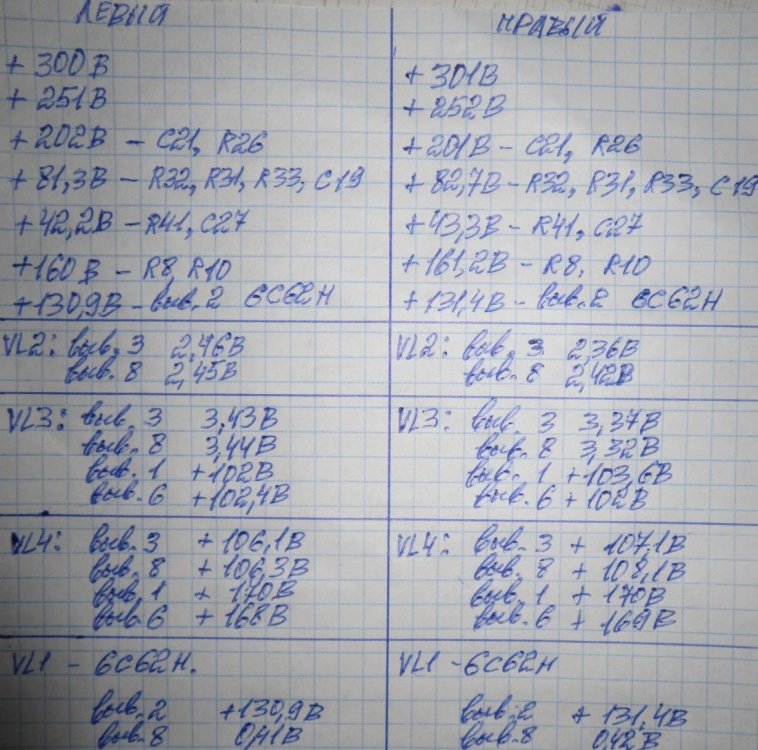 ЛЕВЫЙ
+ 300В
+ 251В
+ 202В – C21, R26
+ 81,3В – R32, R31, R33, C19
+ 42,2В – R41, C27
+160 В – R8, R10
+130,9В – выв. 2 6С62Н
VL2: выв. 3 2,46В
выв. 8 2,45В
VL3: выв. 3 3,43В
выв. 8 3,44В
выв. 1 +102В
выв. 6 +102,4В
VL4: выв. 3 + 106,1В
выв. 8 + 106,3В
выв. 1 + 170В
выв. 6 + 168В
VL1 – 6С62Н.
выв. 2 +130,9В
выв. 8 0,41В
ПРАВЫЙ
+ 301В
+ 252В
+201В – C21, R26
+ 82,7В – R32, R31, R33, C19
+43,3В – R41, C27
+161,2В – R8, R10
+131,4В – выв. 2 6С62Н
VL2: выв. 3 2,36В
выв. 8 2,42В
VL3: выв. 3 3,37В
выв. 8 3,32В
выв. 1 +103,6В
выв. 6 + 102В
VL4: выв. 3 + 107,1В
выв. 8 + 108,1В
выв. 1 + 170В
выв. 6 + 169В
VL1 – 6С62Н
выв. 2 + 131,4В
выв. 8 0,42В